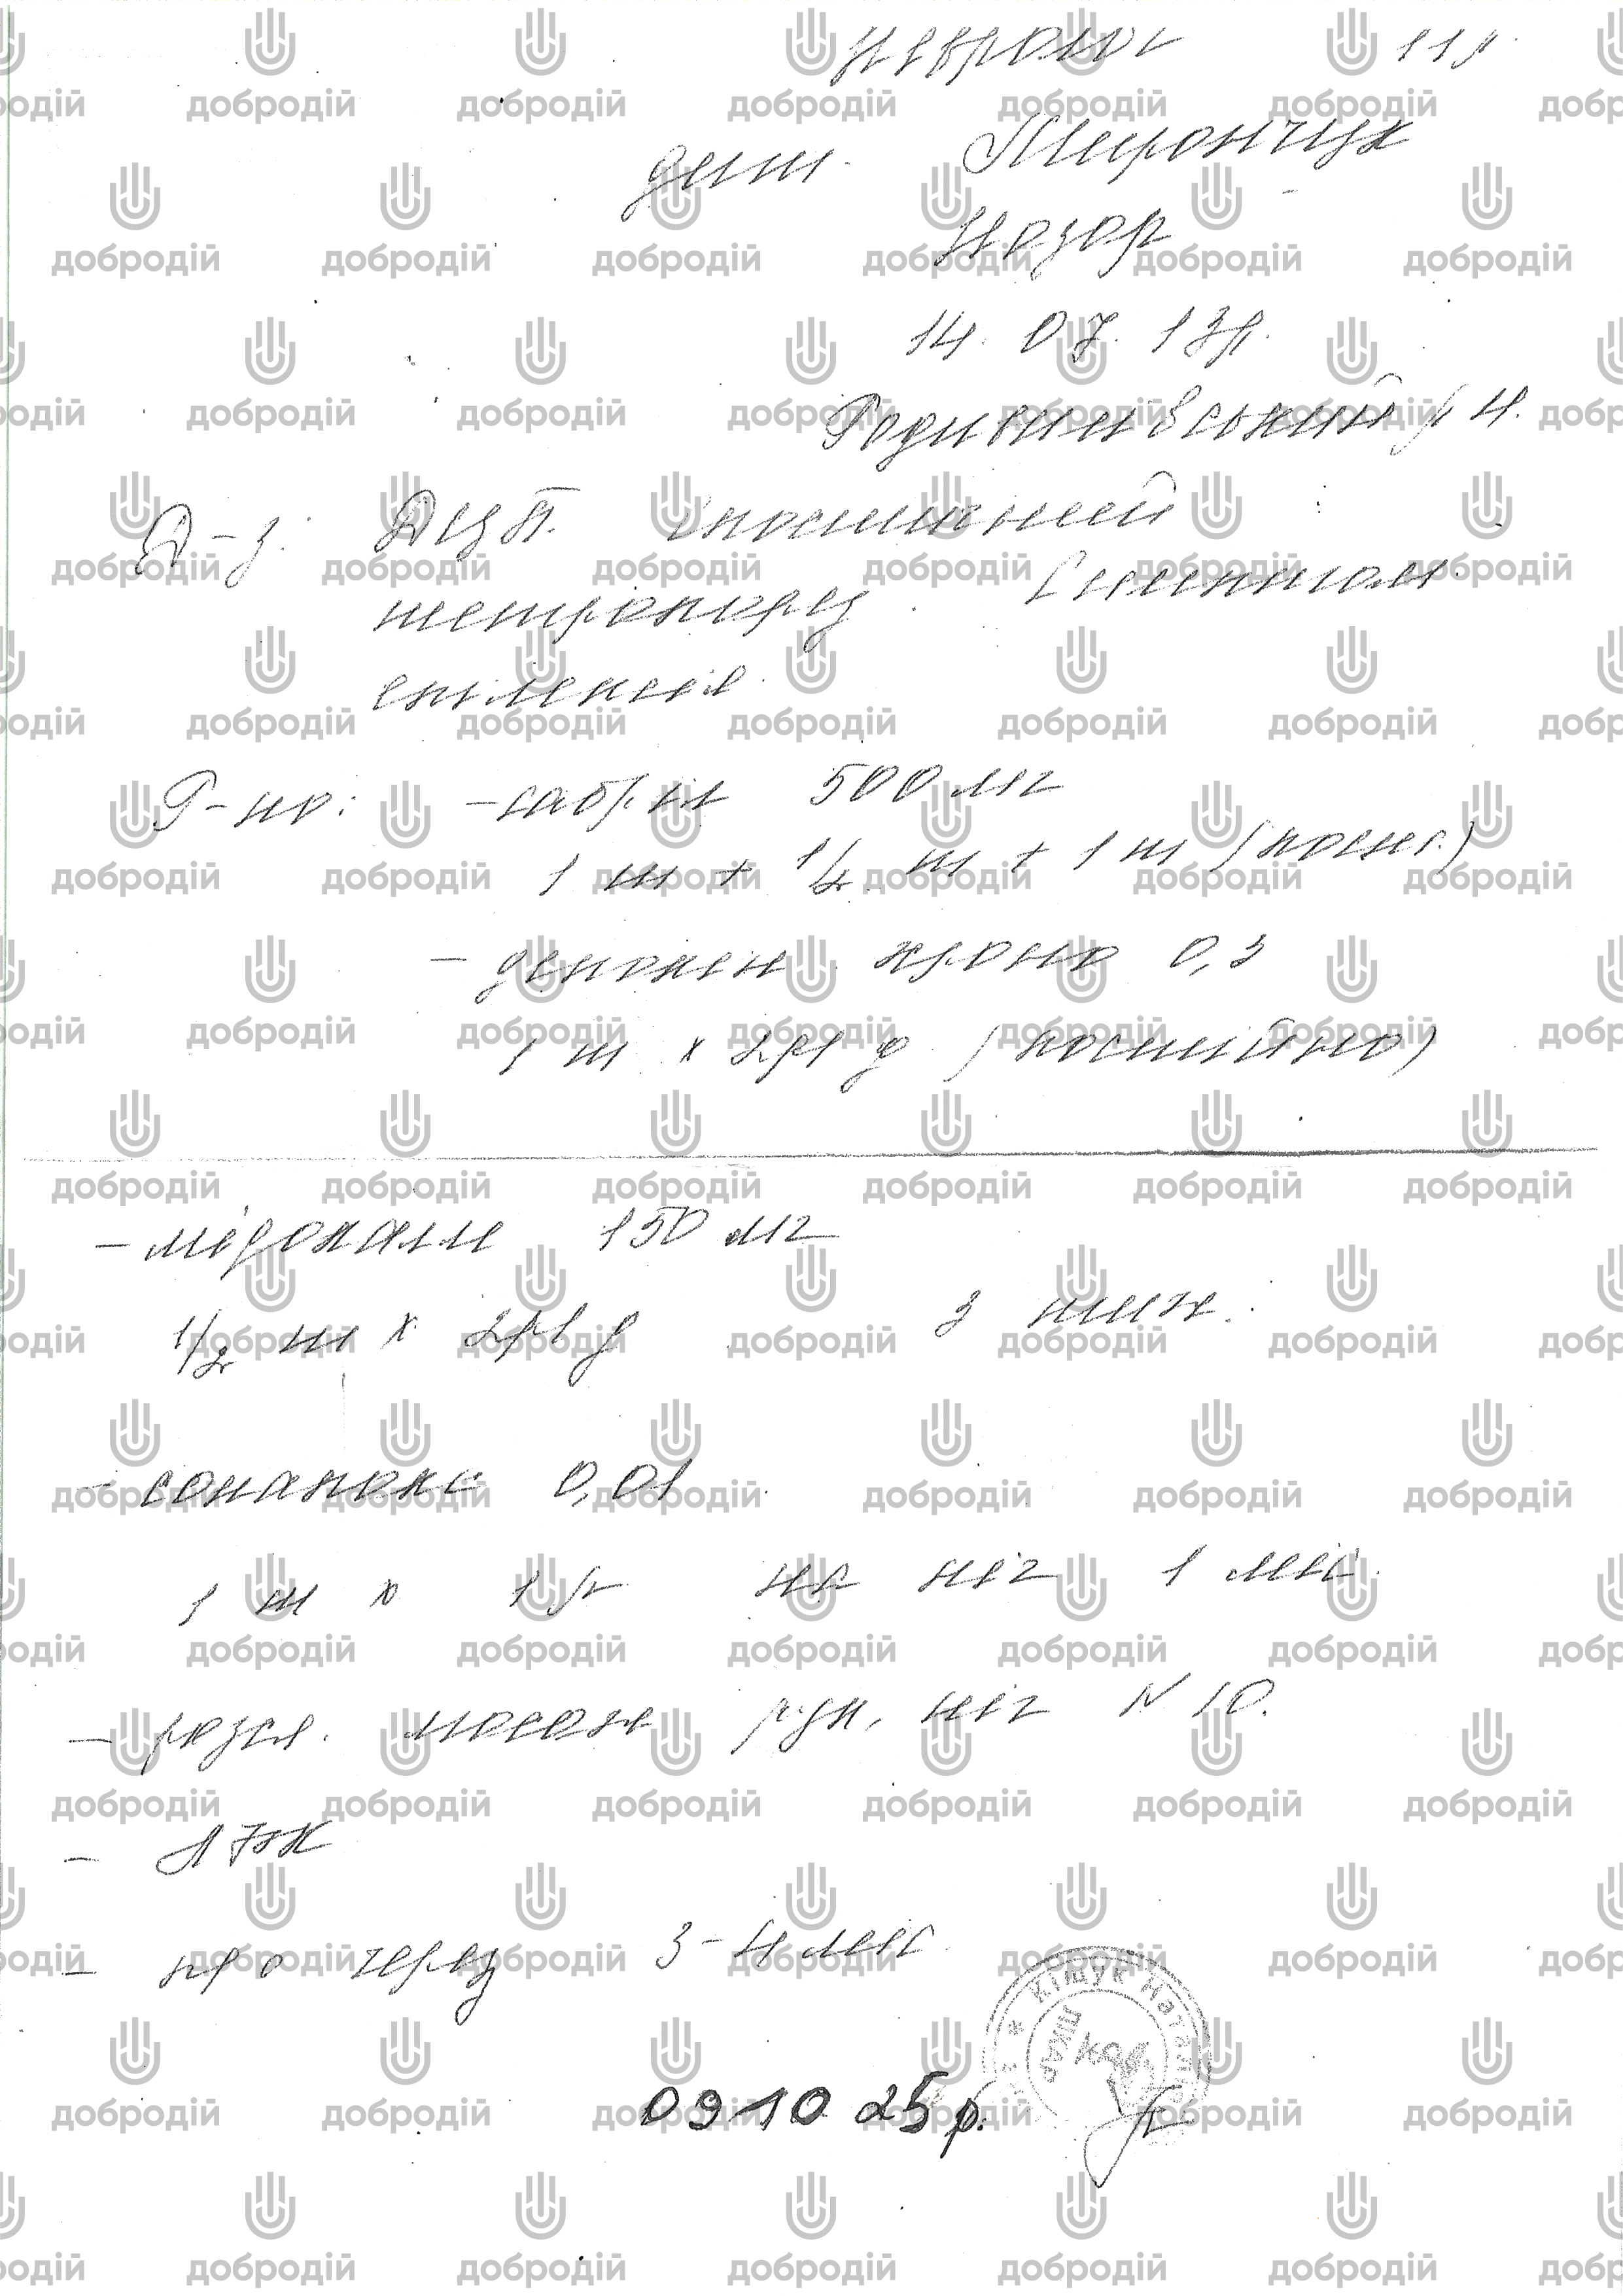 Невролог 11р.
дит. Мирончук
Назар
14. 07. 13р.
Радивилівський р н.
Д-з: ДЦП. Спастичний
тетрапарез. Симптом.
епілепсія.
Р-но: - сабріл 500 мг
1 т + 1/2 т + 1 т (пост.)
- депакін хроно 0,3
1 т х 2 р д (постійно)
- мідокалм 150 мг
1/2 т х 2 р д 3 тиж.
- сонапакс 0,01
1 т х 1 р на ніч 1 міс.
- розсл. масаж рук, ніг N 10.
- ЛФК
- через 3-4 міс.
Кіщук Наталія
Лікар
09 10 25 р.
добродій